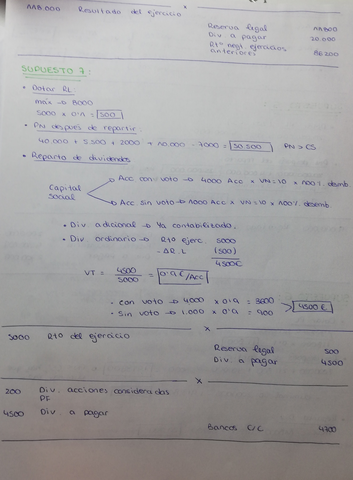 118.000 Resultado del ejercicio
x
Reserva legal 11.800
Div a pagar 20.000
Rtº negt. ejercicios
anteriores 86.200
SUPUESTO 7:
• Dotar RL:
max → 8000
5000 x 0'1 = 500
• PN después de repartir:
40.000 + 5.500 + 2000 + 10.000 - 7000 = 50.500 PN > CS
• Reparto de dividendos
Capital social
Acc. con voto → 4000 Acc x VN=10 x 100% desemb.
Acc sin voto → 1000 Acc x VN=10 x 100% desemb.
• Div adicional → Ya contabilizado.
• Div. ordinario → Rtº ejerc. 5000
- ΔR.L (500)
4500€
VT = 4500 / 5000 = 0'9€/Acc
• con voto → 4000 x 0'9 = 3600
• Sin voto → 1.000 x 0'9 = 900
> 4500€
x
5000 Rtº del ejercicio
Reserva legal 500
Div. a pagar 4500
x
200 Div. acciones consideradas
PF
4500 Div. a pagar
Bancos C/C 4700